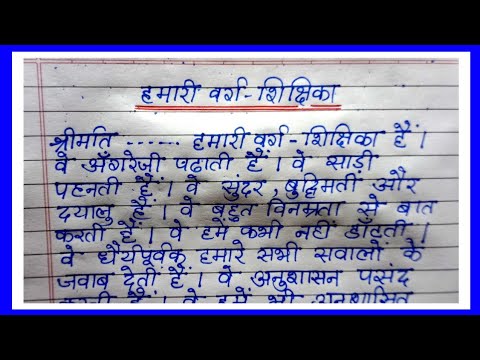 हमारी वर्ग-शिक्षिका
श्रीमति ...... हमारी वर्ग-शिक्षिका हैं।
वे अँगरेजी पढ़ाती हैं। वे साड़ी
पहनती हैं। वे सुंदर, बुद्धिमती और
दयालु हैं। वे बहुत विनम्रता से बात
करती हैं। वे हमें कभी नहीं डाँटती।
वे धैर्यपूर्वक हमारे सभी सवालों के
जवाब देती हैं। वे अनुशासन पसंद
करती हैं। वे हमें भी अनुशासित